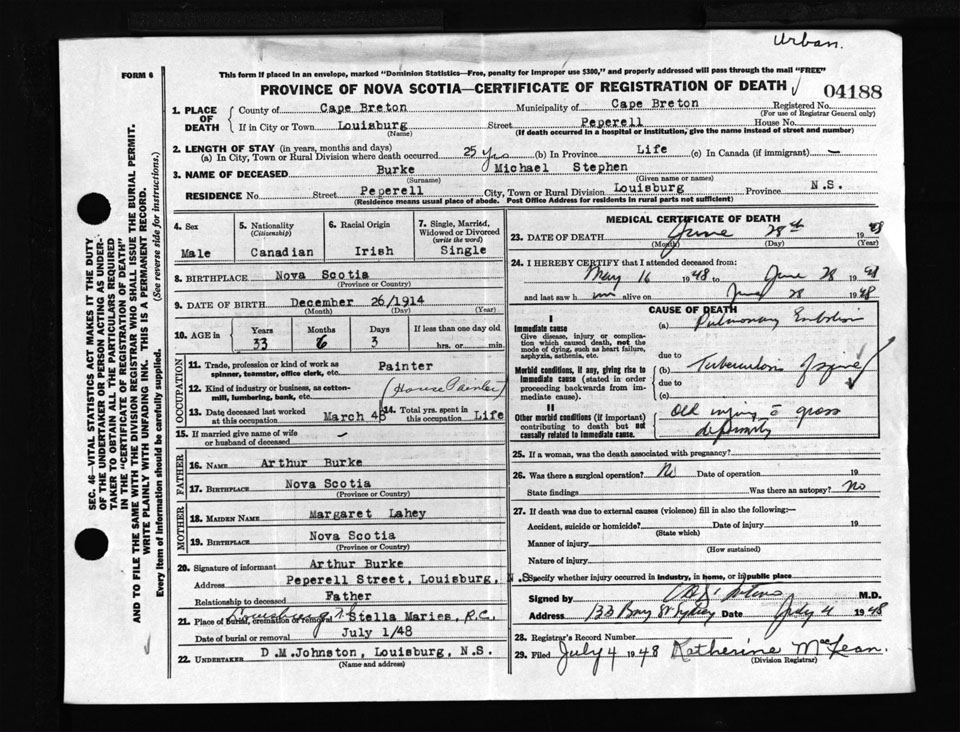 Urban.
FORM 6
This form if placed in an envelope, marked "Dominion Statistics—Free, penalty for improper use $300," and properly addressed will pass through the mail "FREE"
PROVINCE OF NOVA SCOTIA—CERTIFICATE OF REGISTRATION OF DEATH
04188
1. PLACE OF DEATH
County of Cape Breton Municipality of Cape Breton Registered No.
(For use of Registrar General only)
If in City or Town Louisburg Street Peperell House No.
(Name) (If death occurred in a hospital or institution, give the name instead of street and number)
2. LENGTH OF STAY (in years, months and days)
(a) In City, Town or Rural Division where death occurred 25 yrs (b) In Province Life (c) In Canada (if immigrant) —
3. NAME OF DECEASED Burke Michael Stephen
(Surname) (Given name or names)
RESIDENCE No. Street Peperell City, Town or Rural Division Louisburg Province N.S.
(Residence means usual place of abode. Post Office Address for residents in rural parts not sufficient)
4. Sex
Male
5. Nationality
(Citizenship)
Canadian
6. Racial Origin
Irish
7. Single, Married, Widowed or Divorced
(write the word)
Single
8. BIRTHPLACE Nova Scotia
(Province or Country)
9. DATE OF BIRTH December 26/1914
(Month) (Day) (Year)
10. AGE in Years Months Days If less than one day old
33 6 3 hrs. or min.
OCCUPATION
11. Trade, profession or kind of work as spinner, teamster, office clerk, etc. Painter
12. Kind of industry or business, as cotton-mill, lumbering, bank, etc. (House Painter)
13. Date deceased last worked at this occupation March 48
14. Total yrs. spent in this occupation Life
15. If married give name of wife or husband of deceased —
FATHER
16. NAME Arthur Burke
17. BIRTHPLACE Nova Scotia
(Province or Country)
MOTHER
18. MAIDEN NAME Margaret Lahey
19. BIRTHPLACE Nova Scotia
(Province or Country)
20. Signature of informant Arthur Burke
Address Peperell Street, Louisburg, N.S.
Relationship to deceased Father
21. Place of burial, cremation or removal Louisburg N.S. Stella Maries, R.C.
Date of burial or removal July 1/48
22. UNDERTAKER D.M.Johnston, Louisburg, N.S.
(Name and address)
MEDICAL CERTIFICATE OF DEATH
23. DATE OF DEATH June 28th 1948
(Month) (Day) (Year)
24. I HEREBY CERTIFY that I attended deceased from:
May 16 1948 to June 28 1948
and last saw him alive on June 28 1948
CAUSE OF DEATH
I
Immediate cause
Give disease, injury or complication which caused death, not the mode of dying, such as heart failure, asphyxia, asthenia, etc.
(a) Pulmonary Embolism
due to
Morbid conditions, if any, giving rise to immediate cause (stated in order proceeding backwards from immediate cause).
(b) Tuberculosis of spine
due to
(c)
II
Other morbid conditions (if important) contributing to death but not causally related to immediate cause.
Old injury c gross
deformity
25. If a woman, was the death associated with pregnancy?
26. Was there a surgical operation? No Date of operation 19
State findings Was there an autopsy? No
27. If death was due to external causes (violence) fill in also the following:—
Accident, suicide or homicide? Date of injury 19
(State which)
Manner of injury
(How sustained)
Nature of injury
Specify whether injury occurred in industry, in home, or in public place
Signed by M.D.
Address 133 Sydney Date July 4 1948
28. Registrar's Record Number
29. Filed July 4 1948 Katherine MacLean.
(Division Registrar)
SEC. 46—VITAL STATISTICS ACT MAKES IT THE DUTY
OF THE UNDERTAKER OR PERSON ACTING AS UNDER-
TAKER TO OBTAIN ALL THE PARTICULARS REQUIRED
IN THE "CERTIFICATE OF REGISTRATION OF DEATH"
AND TO FILE THE SAME WITH THE DIVISION REGISTRAR WHO SHALL ISSUE THE BURIAL PERMIT.
WRITE PLAINLY WITH UNFADING INK. THIS IS A PERMANENT RECORD.
Every Item of Information should be carefully supplied. (See reverse side for instructions.)